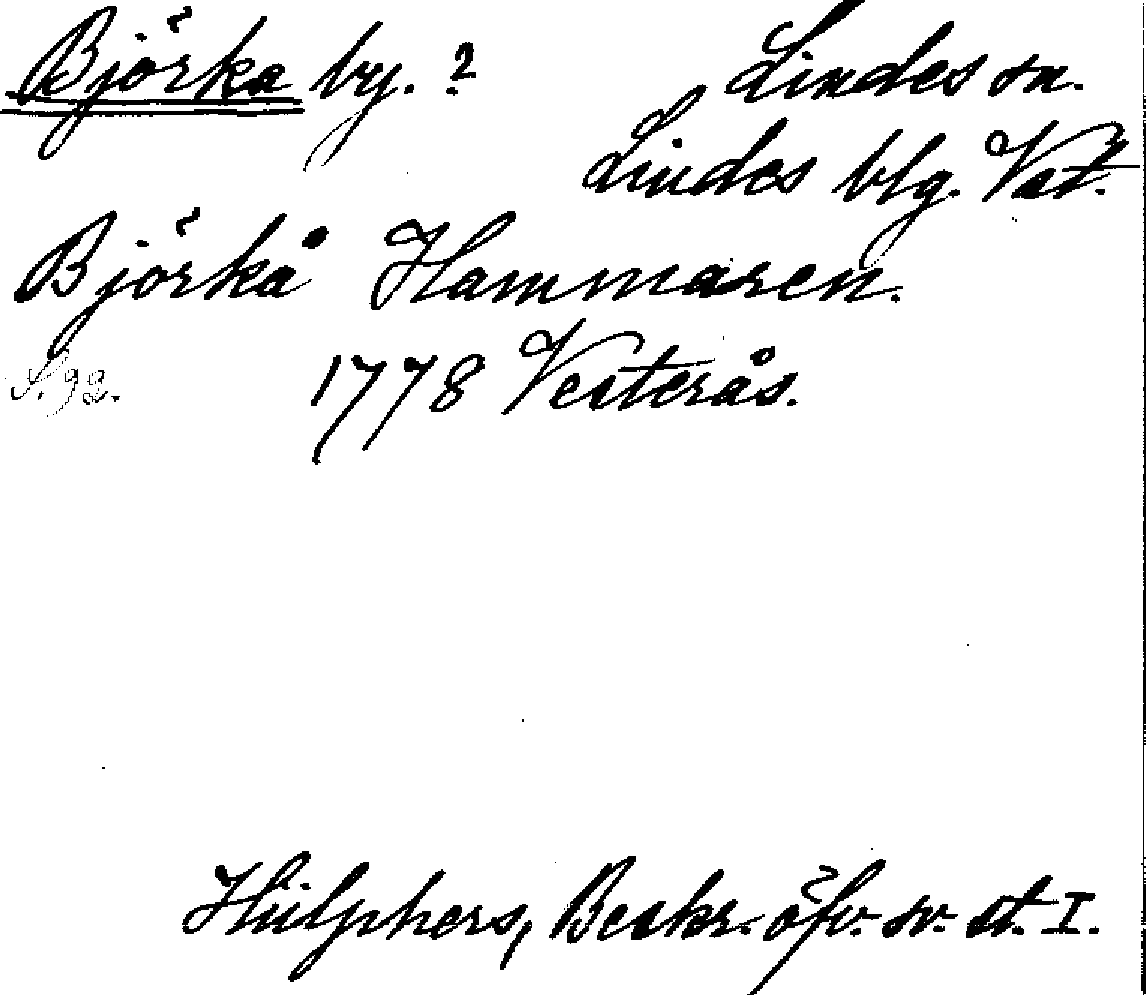 Björka by. ? Lindes sn.
Lindes blg. Vstl.
Björkå Hammaren.
S. 92. 1778 Vesterås.
Hülphers, Beskr. öfv. sv. st. I.